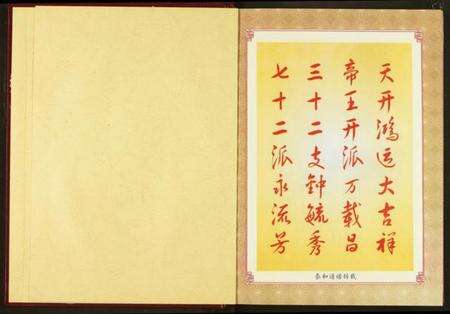 天开鸿运大吉祥
帝王开派万载昌
三十二支钟毓秀
七十二派永流芳
泰和通谱转载